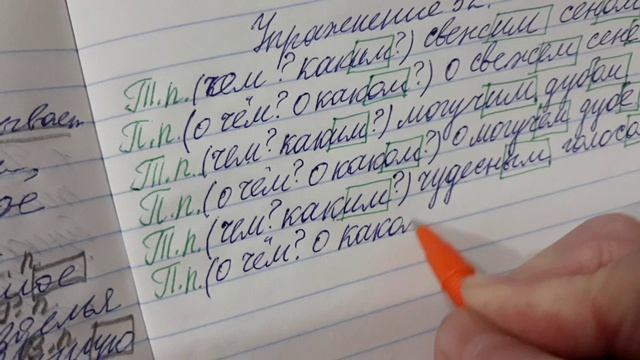 Упражнение 52.
Т.п. (чем? каким?) свежим сеном
П.п. (о чём? о каком?) о свежем сене
Т.п. (чем? каким?) могучим дубом
П.п. (о чём? о каком?) о могучем дубе
Т.п. (чем? каким?) чудесным голосо
П.п. (о чём? о како